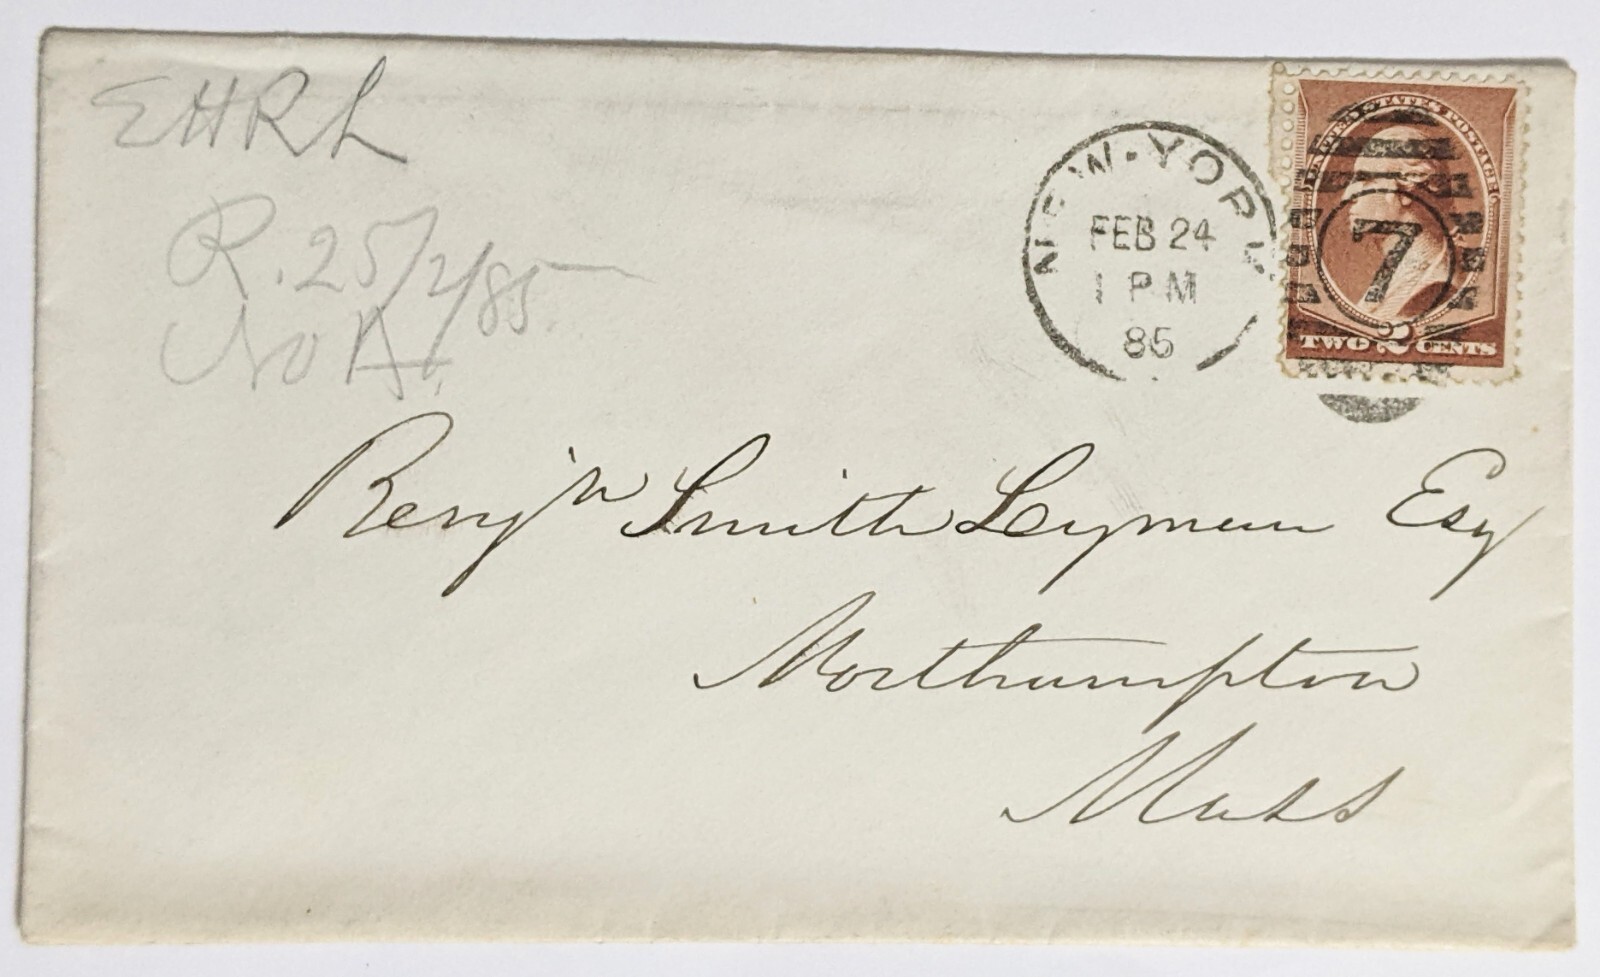 EHRL
R. 25/2/85
No A.
NEW-YORK
FEB 24
1 PM
85
UNITED STATES POSTAGE
7
TWO 2 CENTS
Benjn Smith Lyman Esq
Northampton
Mass